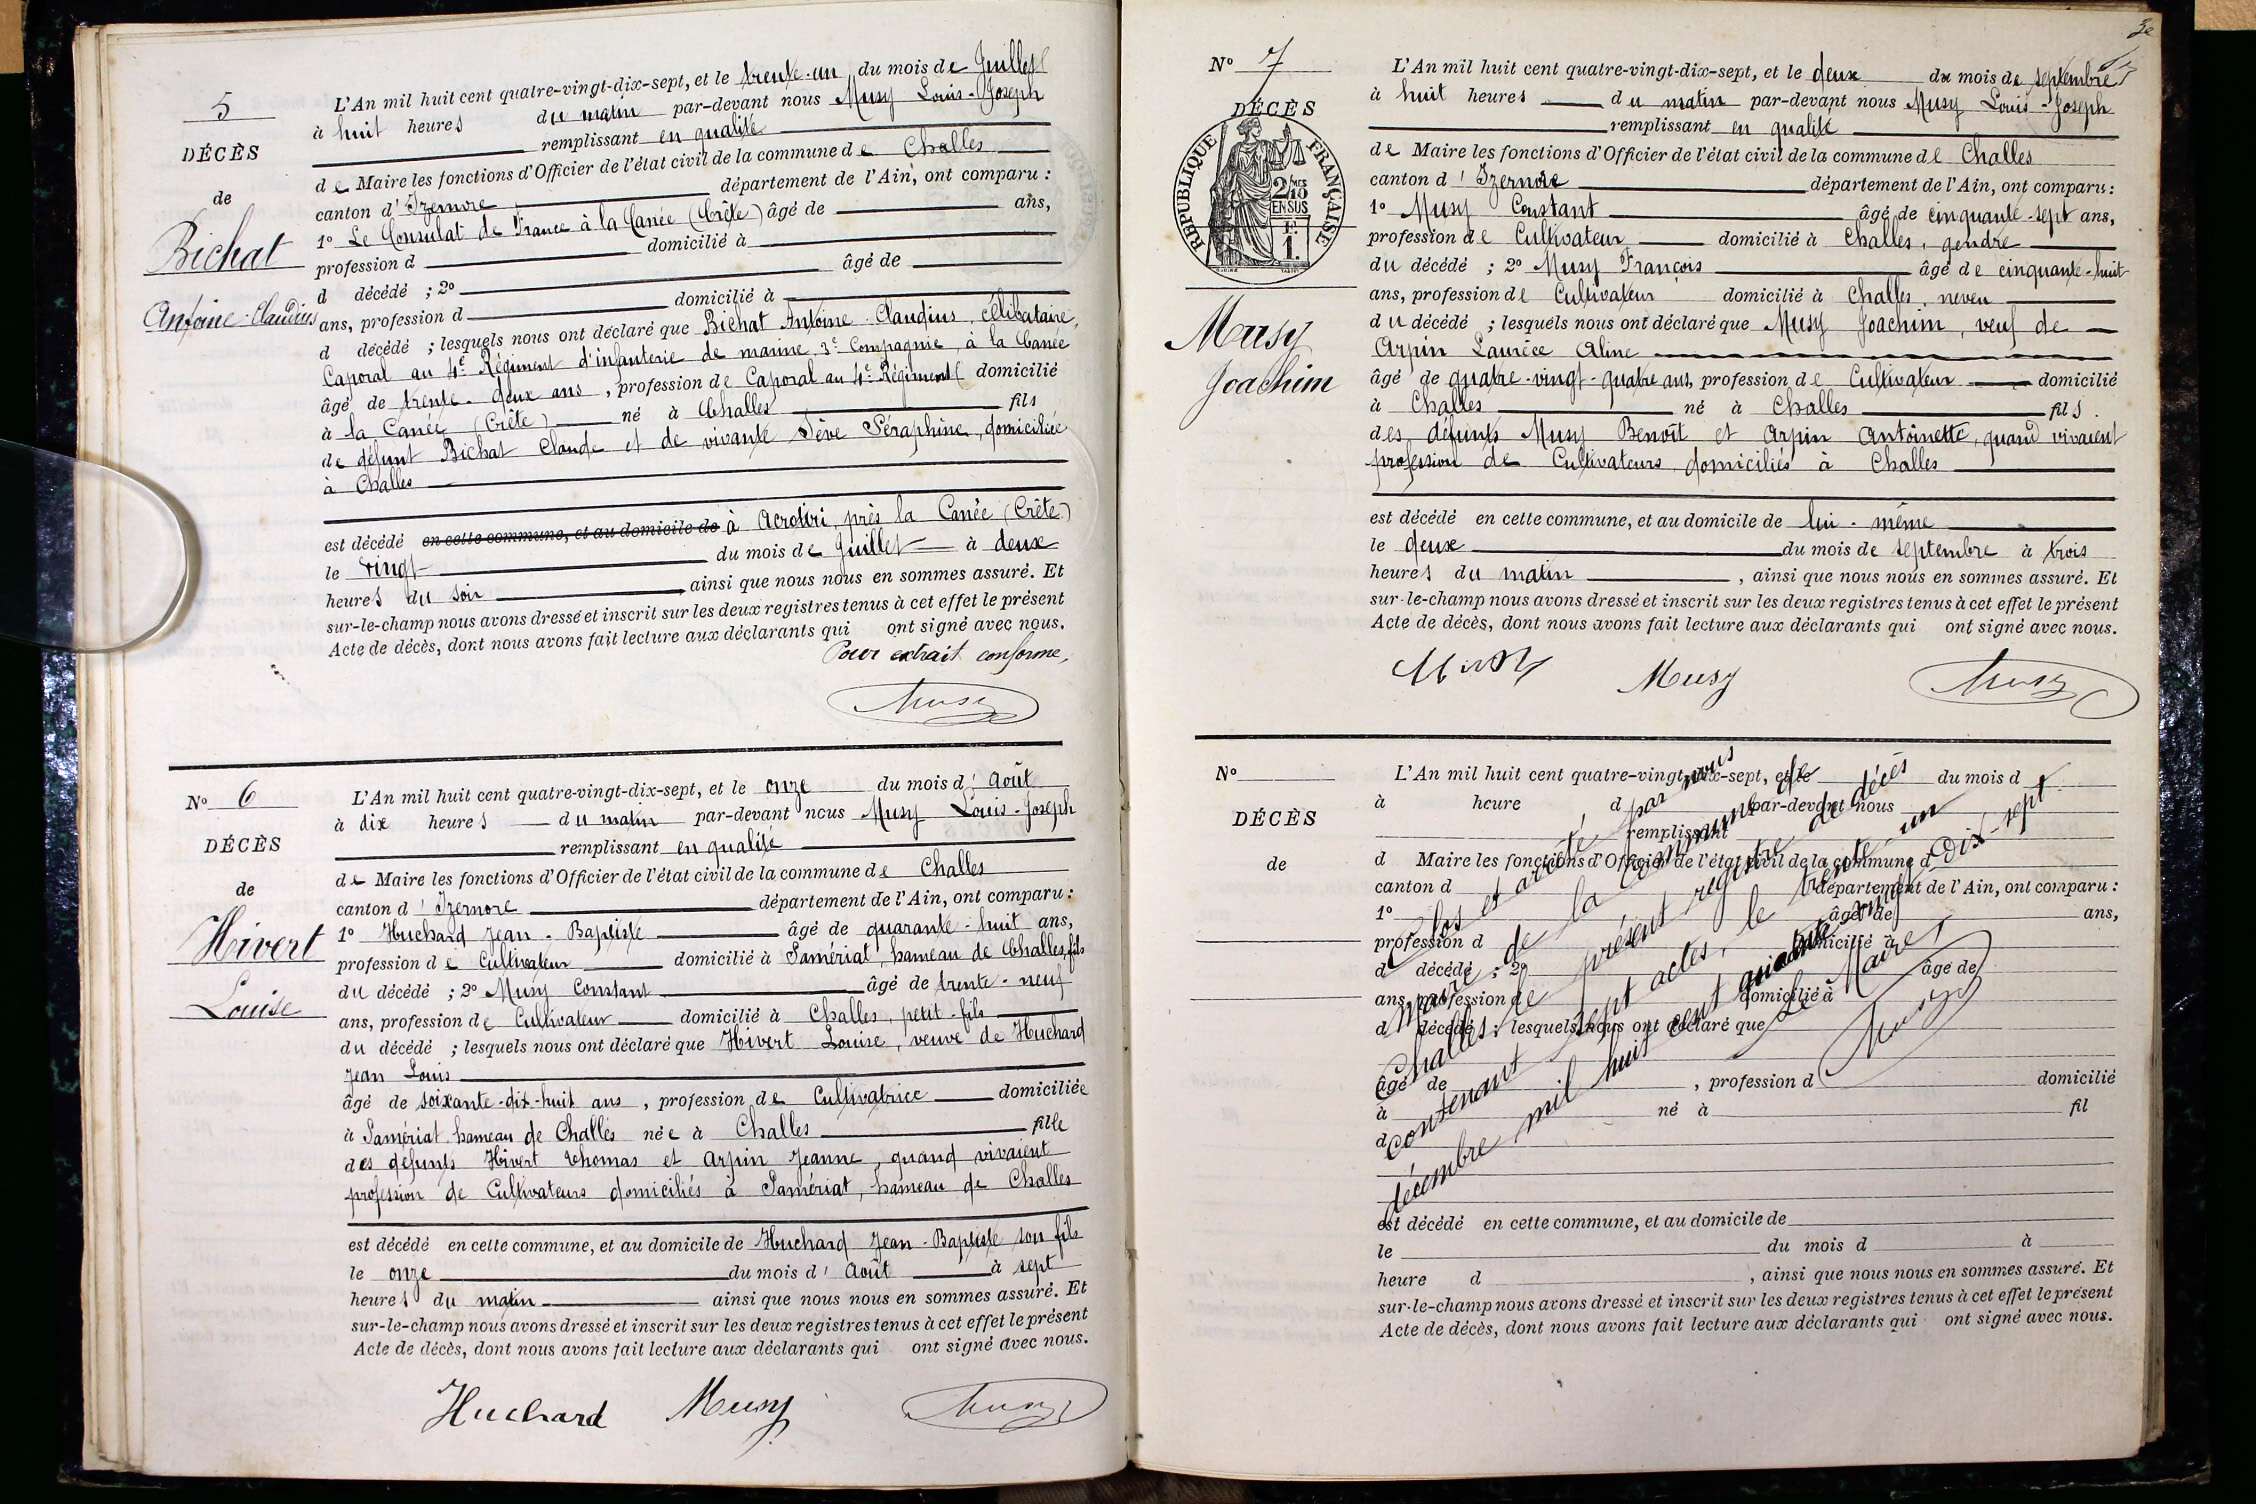 5
DÉCÈS
de
Bichat
Antoine-Claudius
L'An mil huit cent quatre-vingt-dix-sept, et le trente-un du mois de Juillet
à huit heures du matin par-devant nous Musy Louis-Joseph
remplissant en qualité
de Maire les fonctions d'Officier de l'état civil de la commune de Challes
canton d'Izernore département de l'Ain, ont comparu :
1º Le Consulat de France à la Canée (Crête) âgé de ans,
profession d domicilié à
d décédé ; 2º âgé de
ans, profession d domicilié à
d décédé ; lesquels nous ont déclaré que Bichat Antoine-Claudius, célibataire,
Caporal au 4e Régiment d'infanterie de marine, 3e Compagnie, à la Canée
âgé de trente-deux ans, profession de Caporal au 4e Régiment domicilié
à la Canée (Crête) né à Challes fils
de défunt Bichat Claude et de vivante Sève Séraphine, domiciliée
à Challes
est décédé en cette commune, et au domicile de à Acrotiri, près la Canée (Crête)
le vingt du mois de Juillet à deux
heures du soir ainsi que nous nous en sommes assuré. Et
sur-le-champ nous avons dressé et inscrit sur les deux registres tenus à cet effet le présent
Acte de décès, dont nous avons fait lecture aux déclarants qui ont signé avec nous.
Pour extrait conforme,
Musy
Nº 6
DÉCÈS
de
Hivert
Louise
L'An mil huit cent quatre-vingt-dix-sept, et le onze du mois d'Août
à dix heures du matin par-devant nous Musy Louis-Joseph
remplissant en qualité
de Maire les fonctions d'Officier de l'état civil de la commune de Challes
canton d'Izernore département de l'Ain, ont comparu :
1º Huchard Jean-Baptiste âgé de quarante-huit ans,
profession de Cultivateur domicilié à Samériat, hameau de Challes, fils
du décédé ; 2º Musy Constant âgé de trente-neuf
ans, profession de Cultivateur domicilié à Challes, petit-fils
du décédé ; lesquels nous ont déclaré que Hivert Louise, veuve de Huchard
Jean Louis
âgé de soixante-dix-huit ans, profession de Cultivatrice domiciliée
à Samériat hameau de Challes née à Challes fille
des défunts Hivert Thomas et Arpin Jeanne, quand vivaient
profession de Cultivateurs domiciliés à Samériat, hameau de Challes
est décédé en cette commune, et au domicile de Huchard Jean-Baptiste son fils
le onze du mois d'Août à sept
heures du matin ainsi que nous nous en sommes assuré. Et
sur-le-champ nous avons dressé et inscrit sur les deux registres tenus à cet effet le présent
Acte de décès, dont nous avons fait lecture aux déclarants qui ont signé avec nous.
Huchard Musy Musy
Nº 7
DÉCÈS
RÉPUBLIQUE FRANÇAISE
2/10 MES
EN SUS
1 F.
Musy
Joachim
L'An mil huit cent quatre-vingt-dix-sept, et le deux du mois de septembre
à huit heures du matin par-devant nous Musy Louis-Joseph
remplissant en qualité
de Maire les fonctions d'Officier de l'état civil de la commune de Challes
canton d'Izernore département de l'Ain, ont comparu :
1º Musy Constant âgé de cinquante-sept ans,
profession de Cultivateur domicilié à Challes, gendre
du décédé ; 2º Musy François âgé de cinquante-huit
ans, profession de Cultivateur domicilié à Challes, neveu
du décédé ; lesquels nous ont déclaré que Musy Joachim, veuf de
Arpin Laurèce Aline
âgé de quatre-vingt-quatre ans, profession de Cultivateur domicilié
à Challes né à Challes fils
des défunts Musy Benoît et Arpin Antoinette, quand vivaient
profession de Cultivateurs domiciliés à Challes
est décédé en cette commune, et au domicile de lui-même
le deux du mois de septembre à trois
heures du matin, ainsi que nous nous en sommes assuré. Et
sur-le-champ nous avons dressé et inscrit sur les deux registres tenus à cet effet le présent
Acte de décès, dont nous avons fait lecture aux déclarants qui ont signé avec nous.
Musy Musy Musy
Nº
DÉCÈS
de
L'An mil huit cent quatre-vingt-dix-sept, et le du mois d
à heure d par-devant nous
remplissant
d Maire les fonctions d'Officier de l'état civil de la commune d
canton d département de l'Ain, ont comparu :
1º âgé de ans,
profession d domicilié à
d décédé ; 2º âgé de
ans, profession d domicilié à
d décédé ; lesquels nous ont déclaré que
âgé de , profession d domicilié
à né à fil
d
est décédé en cette commune, et au domicile de
le du mois d à
heure d , ainsi que nous nous en sommes assuré. Et
sur-le-champ nous avons dressé et inscrit sur les deux registres tenus à cet effet le présent
Acte de décès, dont nous avons fait lecture aux déclarants qui ont signé avec nous.
Clos et arrêté par nous
Maire de la commune de
Challes, le présent registre de décès
contenant sept actes, le trente un
décembre mil huit cent quatre vingt dix-sept
Le Maire,
Musy